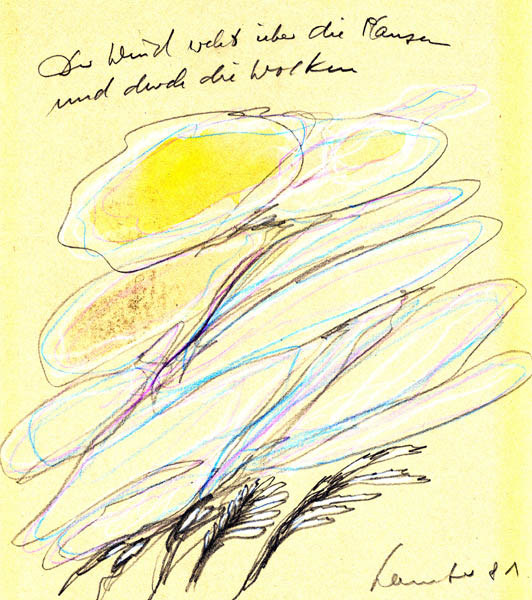 Der Wind weht über die Pflanzen
und durch die Wolken
81